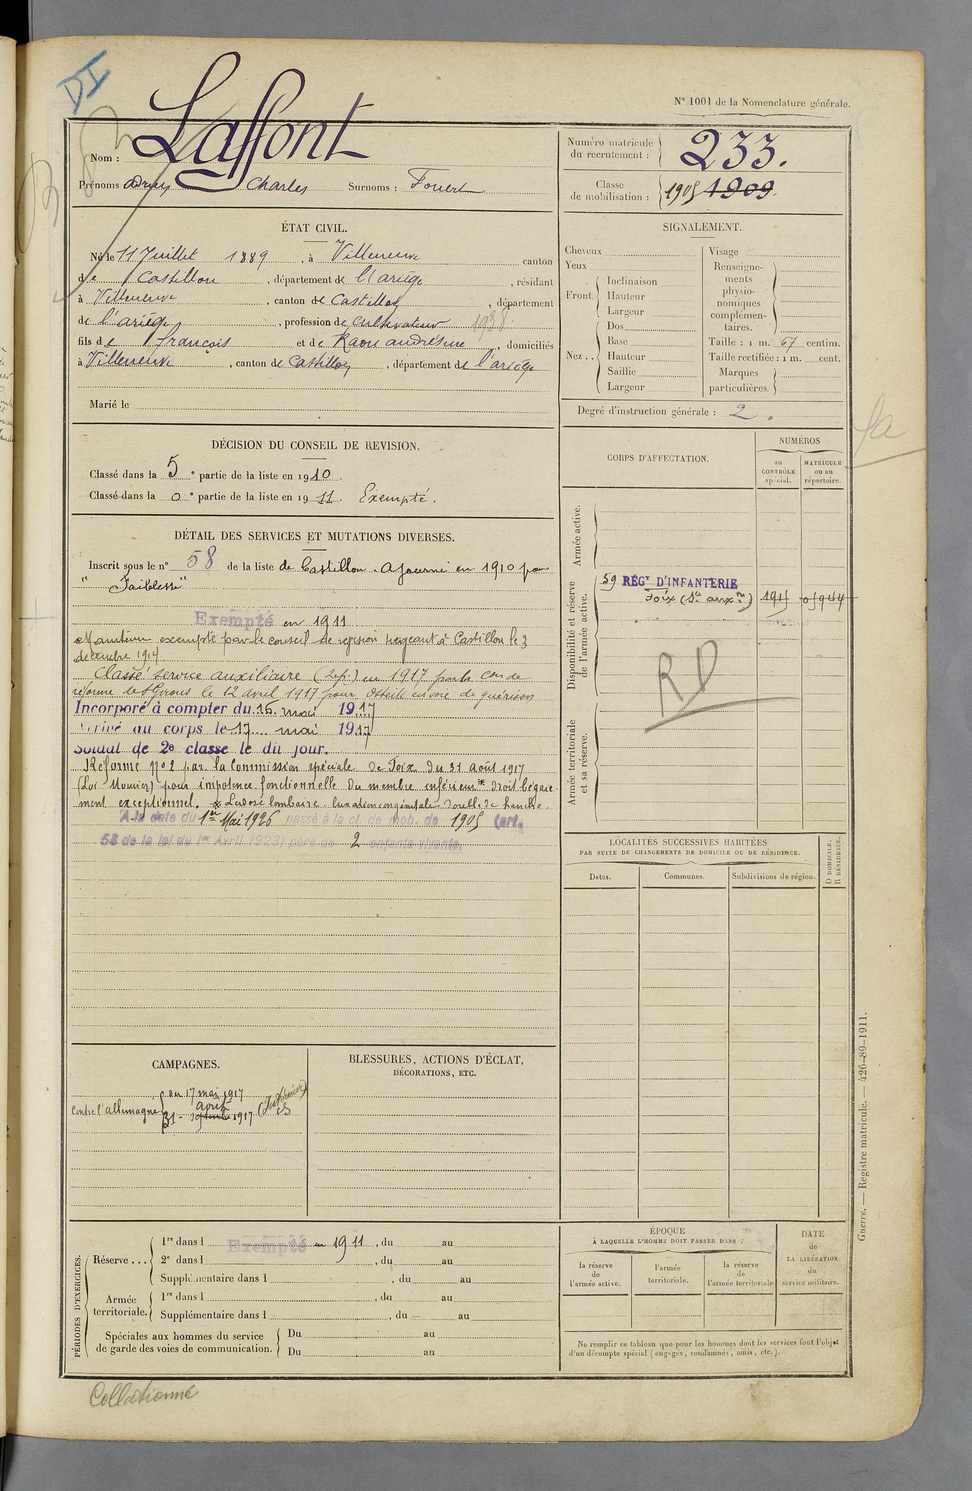 DI
N° 1001 de la Nomenclature générale.
Nom : Laffont
Prénoms Charles Surnoms : Fouert
Numéro matricule du recrutement : 233.
Classe de mobilisation : 1905 1909
ÉTAT CIVIL.
Né le 11 Juillet 1889, à Villeneuve canton
de Castillon, département de l'ariège, résidant
à Villeneuve, canton de Castillon, département
de l'ariège, profession de cultivateur 1938.
fils de François et de domiciliés
à Villeneuve, canton de Castillon, département de l'ariège
Marié le
SIGNALEMENT.
Cheveux
Yeux
Front. Inclinaison
Hauteur
Largeur
Nez.. Dos
Base
Hauteur
Saillie
Largeur
Visage
Renseignements physionomiques complémentaires.
Taille : 1 m. 67 centim.
Taille rectifiée : 1 m. cent.
Marques particulières.
Degré d'instruction générale : 2.
DÉCISION DU CONSEIL DE REVISION.
Classé dans la 5e partie de la liste en 1910.
Classé dans la 0e partie de la liste en 1911. Exempté.
DÉTAIL DES SERVICES ET MUTATIONS DIVERSES.
Inscrit sous le n° 58 de la liste de Castillon. Ajourné en 1910 pour
"Faiblesse"
Exempté en 1911
Maintenu exempté par le conseil de revision siégeant à Castillon le 3
décembre 1914
Classé service auxiliaire (2e p.) en 1917 par la Con de
réforme de St Girons le 12 avril 1917 pour Ostéite en voie de guérison
Incorporé à compter du 15 mai 1917
Arrivé au corps le 17 mai 1917
Soldat de 2e classe le dit jour.
Réformé N° 2 par la Commission spéciale de Foix du 31 août 1917
(Loi Mourier) pour impotence fonctionnelle du membre inférieur* droit légère-
ment exceptionnel. * Lordose lombaire. luxation congénitale double de hanche.
A la date du 1er Mai 1926 passé à la cl. de mob. de 1905 (art.
58 de la loi du 1er Avril 1923) père de 2 enfants vivants.
CORPS D'AFFECTATION.
NUMÉROS
au CONTRÔLE spécial.
MATRICULE ou au répertoire.
Armée active.
Disponibilité et réserve de l'armée active.
59 RÉGT D'INFANTERIE
Foix (Sce auxre) 1915 05944
RD
Armée territoriale et sa réserve.
LOCALITÉS SUCCESSIVES HABITÉES
PAR SUITE DE CHANGEMENTS DE DOMICILE OU DE RÉSIDENCE.
Dates. Communes. Subdivisions de région. D DOMICILE. R RÉSIDENCE.
CAMPAGNES.
Contre l'Allemagne du 17 mai 1917
août
31 1917 (Intérieur)
BLESSURES, ACTIONS D'ÉCLAT,
DÉCORATIONS, ETC.
PÉRIODES D'EXERCICES.
Réserve... 1re dans l Exempté en 1911, du au
2e dans l , du au
Supplémentaire dans l , du au
Armée territoriale. 1re dans l , du au
Supplémentaire dans l , du au
Spéciales aux hommes du service de garde des voies de communication. Du au
Du au
ÉPOQUE
À LAQUELLE L'HOMME DOIT PASSER DANS :
la réserve de l'armée active.
l'armée territoriale.
la réserve de l'armée territoriale
DATE de LA LIBÉRATION du service militaire.
Ne remplir ce tableau que pour les hommes dont les services font l'objet
d'un décompte spécial (engagés, condamnés, omis, etc.).
Guerre. — Registre matricule. — 426-89-1911.
Collationné